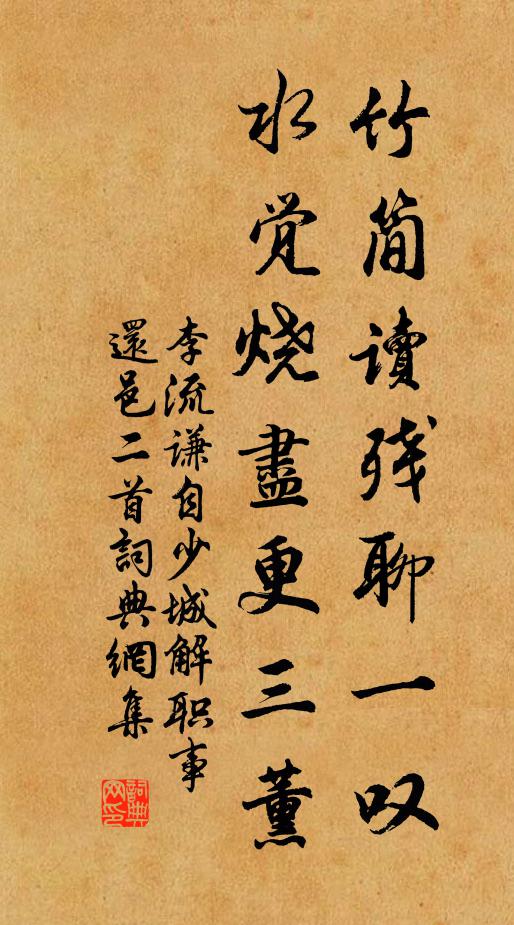 竹简读残聊一叹
水觉烧盡更三薰
李流谦自少城解职事
還邑二首詞典網集
詞典
网印